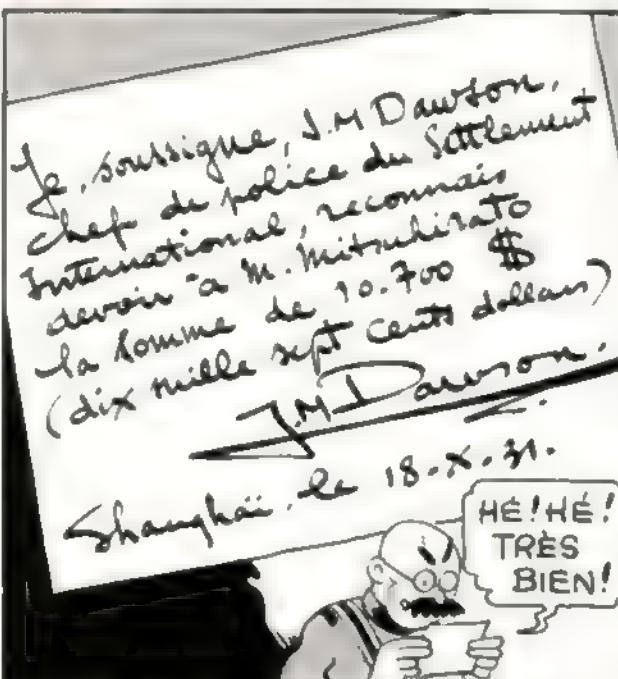 Je, soussigné, J.M Dawson,
chef de police du Settlement
International, reconnais
devoir à M. Mitsuhirato
la somme de 10.700 $
(dix mille sept cents dollars)
J.M Dawson.
Shanghaï, le 18.X.31.
HÉ! HÉ!
TRÈS
BIEN!